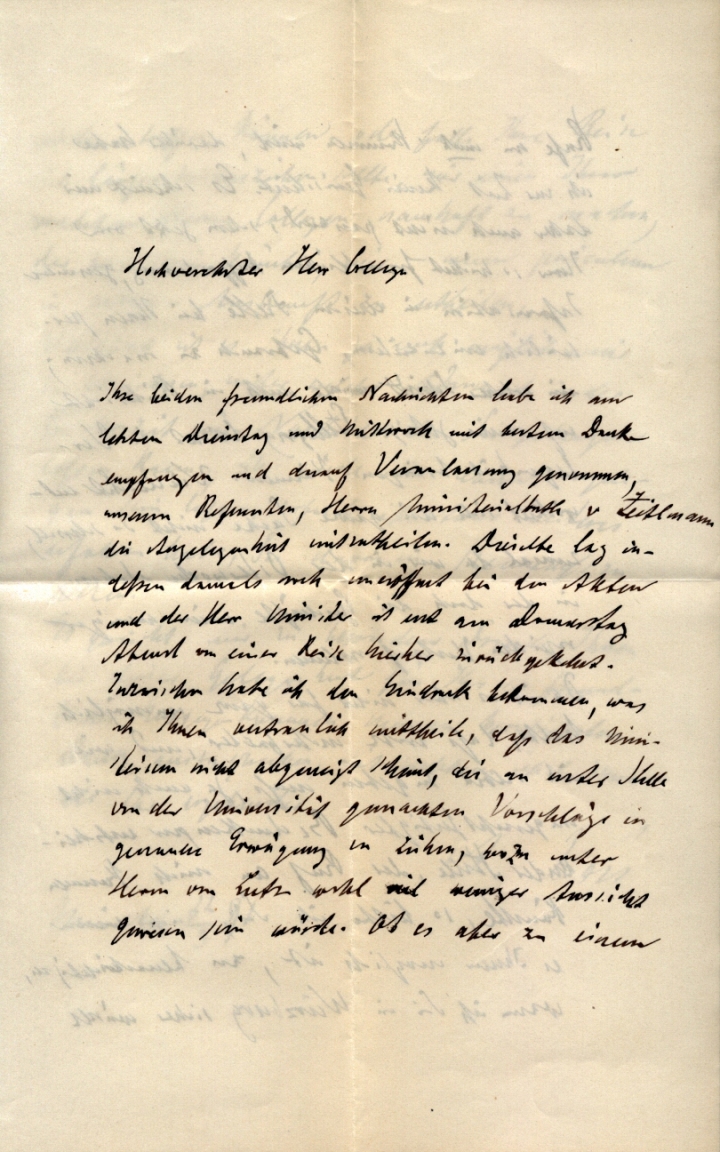 Hochverehrter Herr College
Ihre beiden freundlichen Nachrichten habe ich am
letzten Dienstag und Mittwoch mit bestem Danke
empfangen und darauf Veranlassung genommen,
unserem Referenten, Herrn Ministerialrath v Zeitlmann
die Angelegenheit mitzutheilen. Dieselbe lag in-
dessen damals noch uneröffnet bei den Akten
und der Herr Minister ist erst am Donnerstag
Abend von einer Reise hierher zurückgekehrt.
Inzwischen habe ich den Eindruck bekommen, was
ich Ihnen vertraulich mittheile, daß das Mini-
sterium nicht abgeneigt scheint, die an erster Stelle
von der Universität gemachten Vorschläge in
genauere Erwägung zu ziehen, wozu unter
Herrn von Lutz wohl viel weniger Aussicht
gewesen sein würde. Ob es aber zu einem